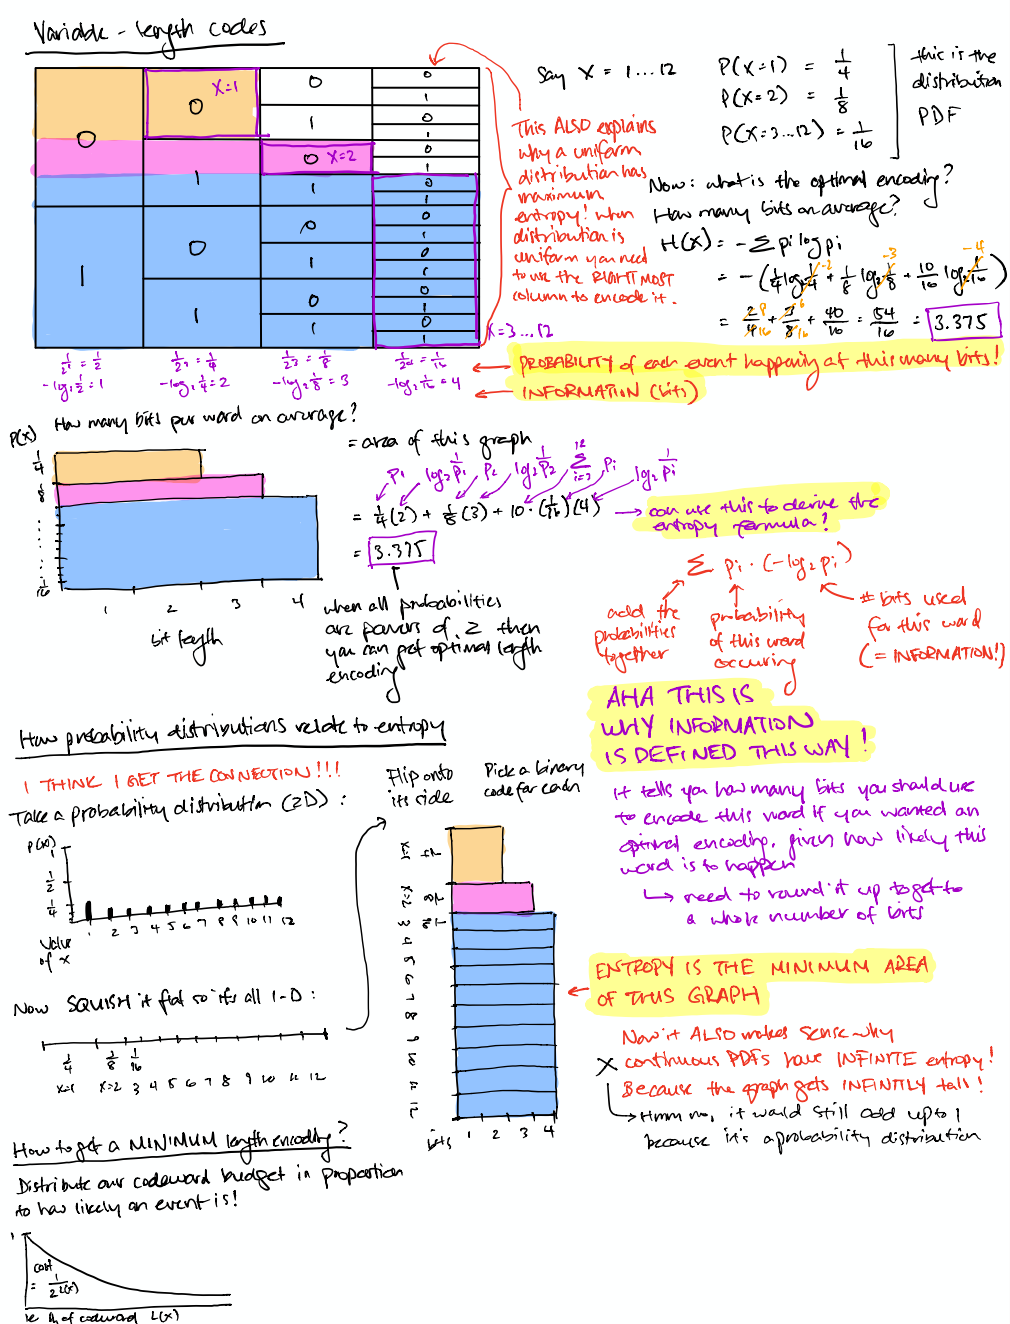 Variable-length codes
0
0
X=1
0
1
0
X=2
1
1
1
0
0
1
1
0
1
0
1
0
1
0
1
0
1
0
1
0
1
0
1
0
1
X=3...12
1/2¹ = 1/2
1/2² = 1/4
1/2³ = 1/8
1/2⁴ = 1/16
-log₂ 1/2 = 1
-log₂ 1/4 = 2
-log₂ 1/8 = 3
-log₂ 1/16 = 4
PROBABILITY of each event happening at this many bits!
INFORMATION (bits)
This ALSO explains
why a uniform
distribution has
maximum
entropy! when
distribution is
uniform you need
to use the RIGHTMOST
column to encode it.
Say X = 1...12
P(X=1) = 1/4
P(X=2) = 1/8
P(X=3...12) = 1/16
this is the
distribution
PDF
Now: what is the optimal encoding?
How many bits on average?
H(X) = -Σ pi log pi
= -(1/4 log₂ 1/4 + 1/8 log₂ 1/8 + 10/16 log₂ 1/16)
-2
-3
-4
= 2/4 + 3/8 + 40/16 = 54/16 = 3.375
8
16
6
16
How many bits per word on average?
P(x)
1/4
1/8
1/16
1 2 3 4
bit length
= area of this graph
P₁ log₂ 1/P₁ P₂ log₂ 1/P₂ Σ 12 i=3 Pi log₂ 1/Pi
= 1/4(2) + 1/8(3) + 10·(1/16)(4)
→ can use this to derive the
entropy formula?
= 3.375
when all probabilities
are powers of 2 then
you can get optimal length
encoding
Σ pi · (-log₂ pi)
add the
probabilities
together
probability
of this word
occuring
# bits used
for this word
(= INFORMATION!)
AHA THIS IS
WHY INFORMATION
IS DEFINED THIS WAY!
it tells you how many bits you should use
to encode this word if you wanted an
optimal encoding, given how likely this
word is to happen
↳ need to round it up to get to
a whole number of bits
How probability distributions relate to entropy
I THINK I GET THE CONNECTION!!!
Take a probability distribution (2D):
P(x)
1
1/2
1/4
1 2 3 4 5 6 7 8 9 10 11 12
Value
of x
Now SQUISH it flat so it's all 1-D:
1/4 1/8 1/16
x=1 x=2 3 4 5 6 7 8 9 10 11 12
Flip onto
its side
Pick a binary
code for each
x=1 1/4
x=2 1/8
3 1/16
4
5
6
7
8
9
10
11
12
bits 1 2 3 4
ENTROPY IS THE MINIMUM AREA
OF THIS GRAPH
Now it ALSO makes sense why
X continuous PDFs have INFINITE entropy!
Because the graph gets INFINITLY tall!
↳ Hmm no, it would still add up to 1
because it's a probability distribution
How to get a MINIMUM length encoding?
Distribute our codeword budget in proportion
to how likely an event is!
1
cost
= 1/2^L(x)
of codeword L(x)